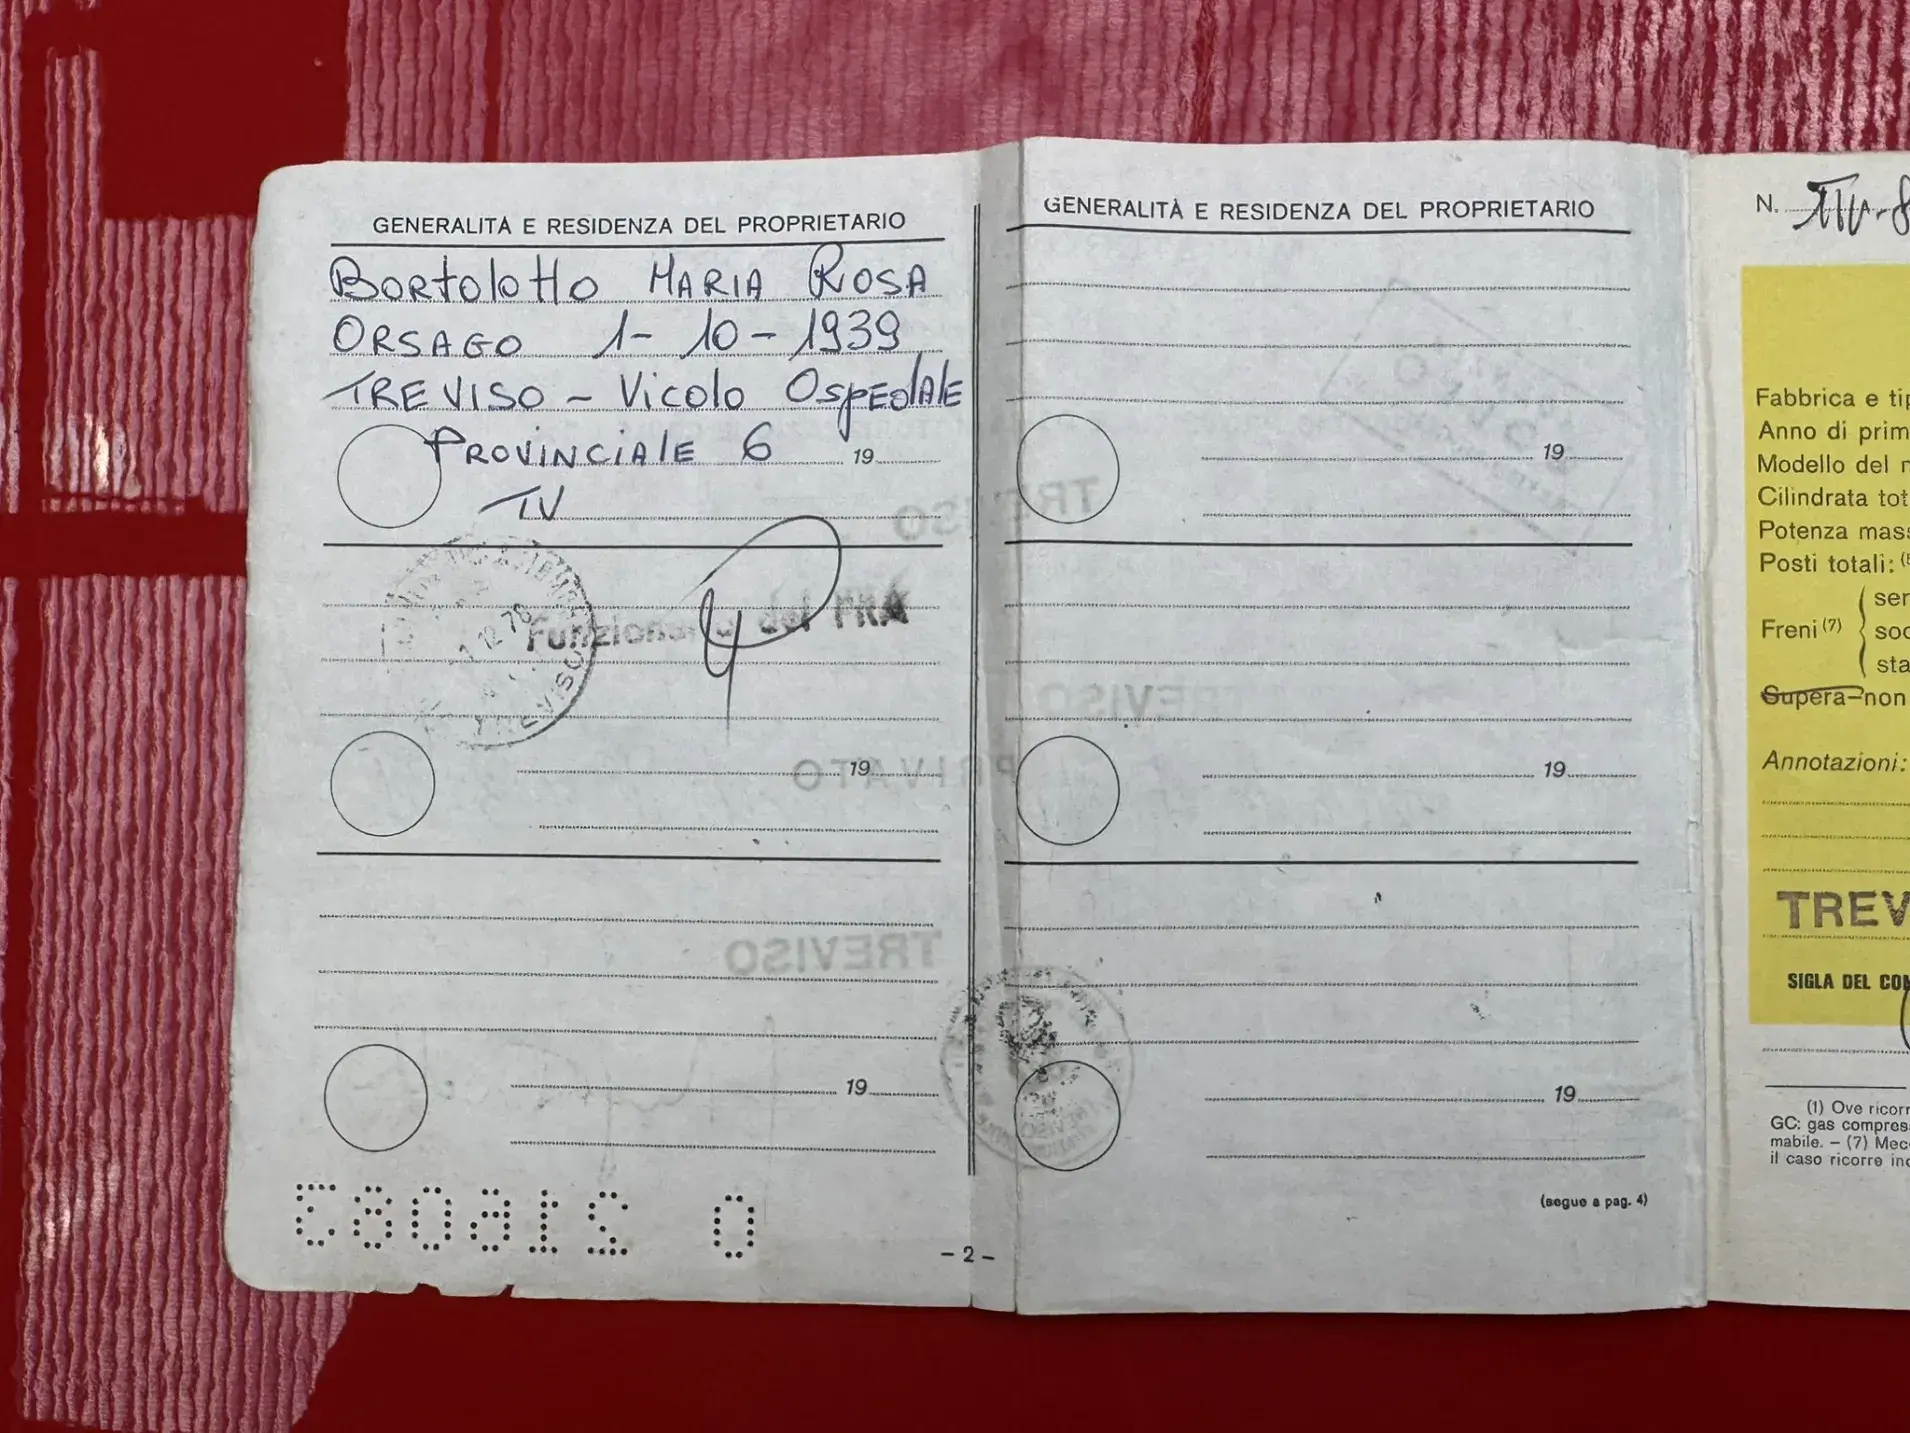 GENERALITÀ E RESIDENZA DEL PROPRIETARIO
Bortolotto MARIA ROSA
ORSAGO 1-10-1939
TREVISO - Vicolo OspEdAlE
PROVINCIAlE 6 19
TV
Funzionario del PRA
12 78
TREVISO
19
19
0 2160833
- 2 -
GENERALITÀ E RESIDENZA DEL PROPRIETARIO
19
19
19
(segue a pag. 4)
TREVISO
TREVISO
PRIVATO
TREVISO
N. TV-8
Fabbrica e tip
Anno di prim
Modello del m
Cilindrata tot
Potenza mass
Posti totali:
Freni (7)
ser
soc
sta
Supera-non
Annotazioni:
TREV
SIGLA DEL COM
(1) Ove ricorr
GC: gas compres
mabile. – (7) Mec
il caso ricorre inc